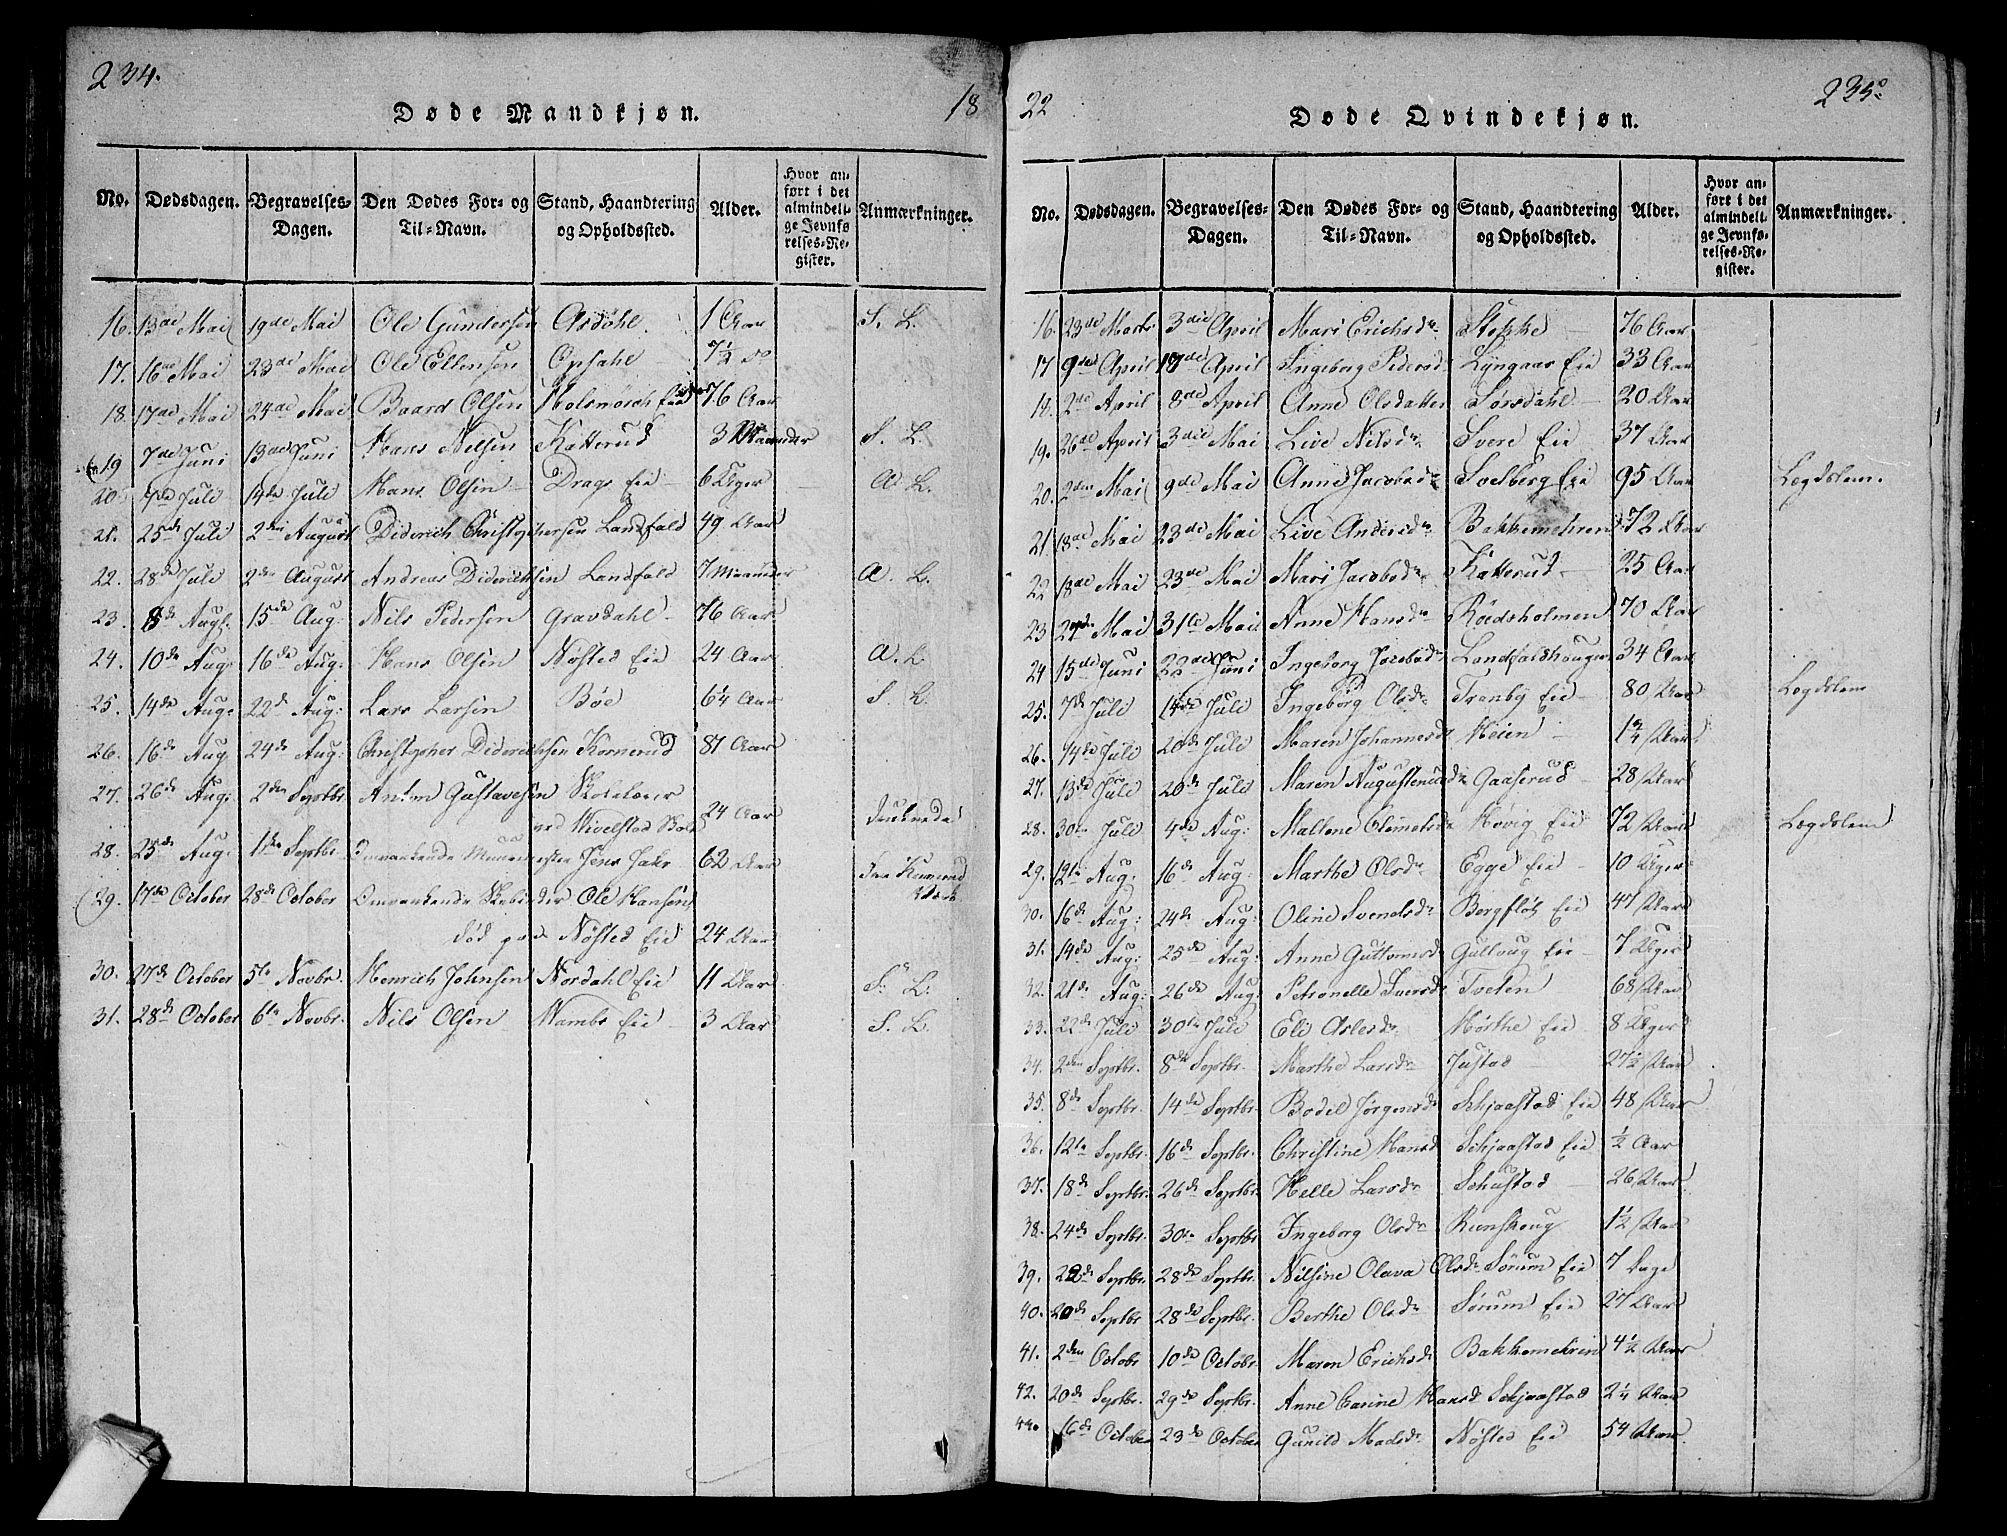 234.
Døde Mandkjøn.
18
No. Dødsdagen. Begravelses-Dagen. Den Dødes For- og Til-Navn. Stand, Haandtering og Opholdssted. Alder. Hvor anført i det almindelige Jevnførelses-Register. Anmærkninger.
16. 13de Mai 19de Mai Ole Gundersen Asdøhl 1 Aar S. L.
17. 16de Mai 23de Mai Ole Ellensen Opsahl 7½ do
18. 17de Mai 24de Mai Baard Olsen Eie 76 Aar
19 7de Juni 13de Juni Hans Nelsen Katterud 3 Maaneder S. L.
20 7de Juli 14de Juli Hans Olsen Drags Eie 6 Uger A. L.
21. 25de Juli 2den August Diderich Christophersen Landfald 49 Aar
22. 28de Juli 2den August Andreas Diderichsen Landfald 7 Maaneder A. L.
23. 8de Augt. 15de Aug: Nils Pedersen Gravdahl 76 Aar
24. 10de Aug: 16de Aug: Hans Olsen Nøsted Eie 24 Aar A. L.
25. 14de Aug: 22de Aug: Lars Larsen Bøe 64 Aar S. L.
26. 16de Aug 24de Aug: Christopher Diderichsen Kornerud 81 Aar
27. 26de Aug: 2den Septbr. Anton Gustavesen Skolelærer
ved Wivelstad Skole 24 Aar Druknede
28. 25de Aug: 1ste Septbr. Omvankende Jens 62 Aar
29. 17de October 28de October Omvankende Ole Hansen
død paa Nøsted Eie 24 Aar
30. 27de October 5te Novbr. Henrich Johnsen Nordahl Eie 11 Aar S. L.
31. 28de October 6te Novbr. Nils Olsen Wambs Eie 3 Aar S. L.
22
Døde Qvindekjøn.
235.
No. Dødsdagen. Begravelses-Dagen. Den Dødes For- og Til-Navn. Stand, Haandtering og Opholdssted. Alder. Hvor anført i det almindelige Jevnførelses-Register. Anmærkninger.
16. 23de Marts 3die April Mari Erichsdr Stokke 76 Aar
17 9de April 17de April Ingeborg Pedersd. Lyngaas Eie 33 Aar
18. 2de April 8de April Anne Olsdatter Sørsdahl 20 Aar
19. 26de April 3die Mai Live Nilsdr Svere Eie 37 Aar
20. 2den Mai 9de Mai Anne Jacobsdr Solberg Eie 95 Aar Lægdslem.
21 18de Mai 23de Mai Live Andersdr Bakkemehren 72 Aar
22 18de Mai 23de Mai Mari Jacobsdr Katterud 25 Aar
23 24de Mai 31te Mai Anne Hansdr Rödsholmen 70 Aar
24 15de Juni 22de Juni Ingeborg Jacobsdr Landfaldhougen 34 Aar
25. 7de Juli 14de Juli Ingeborg Olsdr Tranby Eie 80 Aar Lægdslem
26. 14de Juli 20de Juli Maren Johannesdr Meien 1¾ Aar
27. 13de Juli 20de Juli Maren Augustenusdr Gaaserud 28 Aar
28. 30te Juli 4de Aug: Mallene Clemetsdr Høvig Eie 72 Aar Lægdslem
29. 12te Aug: 16de Aug: Marthe Olsdr Egge Eie 10 Uger
30. 16de Aug: 24de Aug: Oline Svendsdr Bergfløt Eie 47 Aar
31. 14de Aug: 25de Aug: Anne Guttormsd Gullaug Eie 7 Uger
32. 21de Aug: 26de Aug: Petronelle Iversdr Tveten 68 Aar
33. 22de Juli 30te Juli Eli Aslesdr Hørthe Eie 8 Uger
34. 2den Septbr. 8de Septbr. Marthe Larsdr Justad 27½ Aar
35. 8de Septbr. 14de Septbr. Bodel Jørgensdr Schjaastad Eie 48 Aar
36. 12te Septbr. 16de Septbr. Christine Hansd Schjaastad Eie ½ Aar
37. 18de Septbr. 26de Septbr. Helle Larsdr Schustad 26 Aar
38. 24de Septbr. 30te Septbr. Ingeborg Olsdr Renskoug 1½ Aar
39. 22de Septbr. 28de Septbr. Nilsine Olava Olsdr Sørum Eie 7 Dage
40. 20de Septbr. 28de Septbr. Berthe Olsdr Sørum Eie 27 Aar
41. 2den Octobr 10de Octobr Maren Erichsdr Bakkemehren 4½ Aar
42. 20de Septbr. 29de Septbr. Anne Carine Hansd Schjaastad 2¼ Aar
43. 16de October 23de October Gunild Madsdr Nøsted Eie 54 Aar